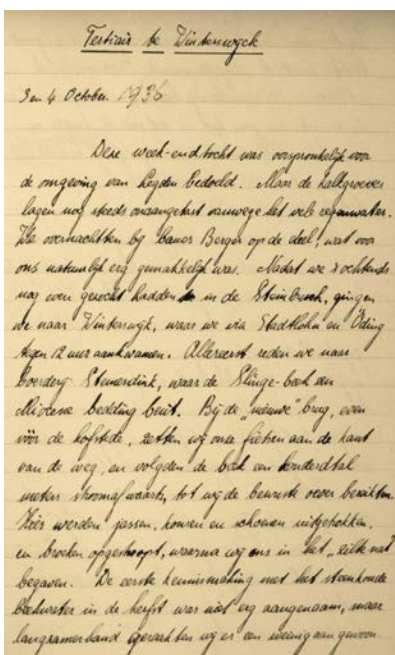 Tertiair te Winterswyck
3 en 4 October. 1936
Deze week-end tocht was oorspronkelijk voor
de omgeving van Legden bedoeld. Maar de kalkgroeves
lagen nog steeds onaangetast vanwege het vele regenwater.
We overnachtten by Bauer Berger op de deel, wat voor
ons natuurlyk erg gemakkelyk was. Nadat we 's ochtends
nog even gezocht hadden in de Steinbruch, gingen
we naar Winterswyk, waar we via Stadtlohn en Öding
tegen 12 uur aankwamen. Allereerst reden we naar
boerdery Stemerdink, waar de Slinge-beek een
Miocene bedding bezit. Bij de "nieuwe" brug, even
vóór de hofstede, zetten wy onze fietsen aan de kant
van de weg, en volgden de beek een honderdtal
meters stroomafwaarts, tot wy de bewuste oever bereikten.
Hier werden jassen, kousen en schoenen uitgetrokken,
en broeken opgestroopt, waarna wy ons in het "zilte nat"
begaven. De eerste kennismaking met het steenkoude
beekwater in de herfst was niet erg aangenaam, maar
langzamerhand geraakten wy er een weinig aan gewoon.